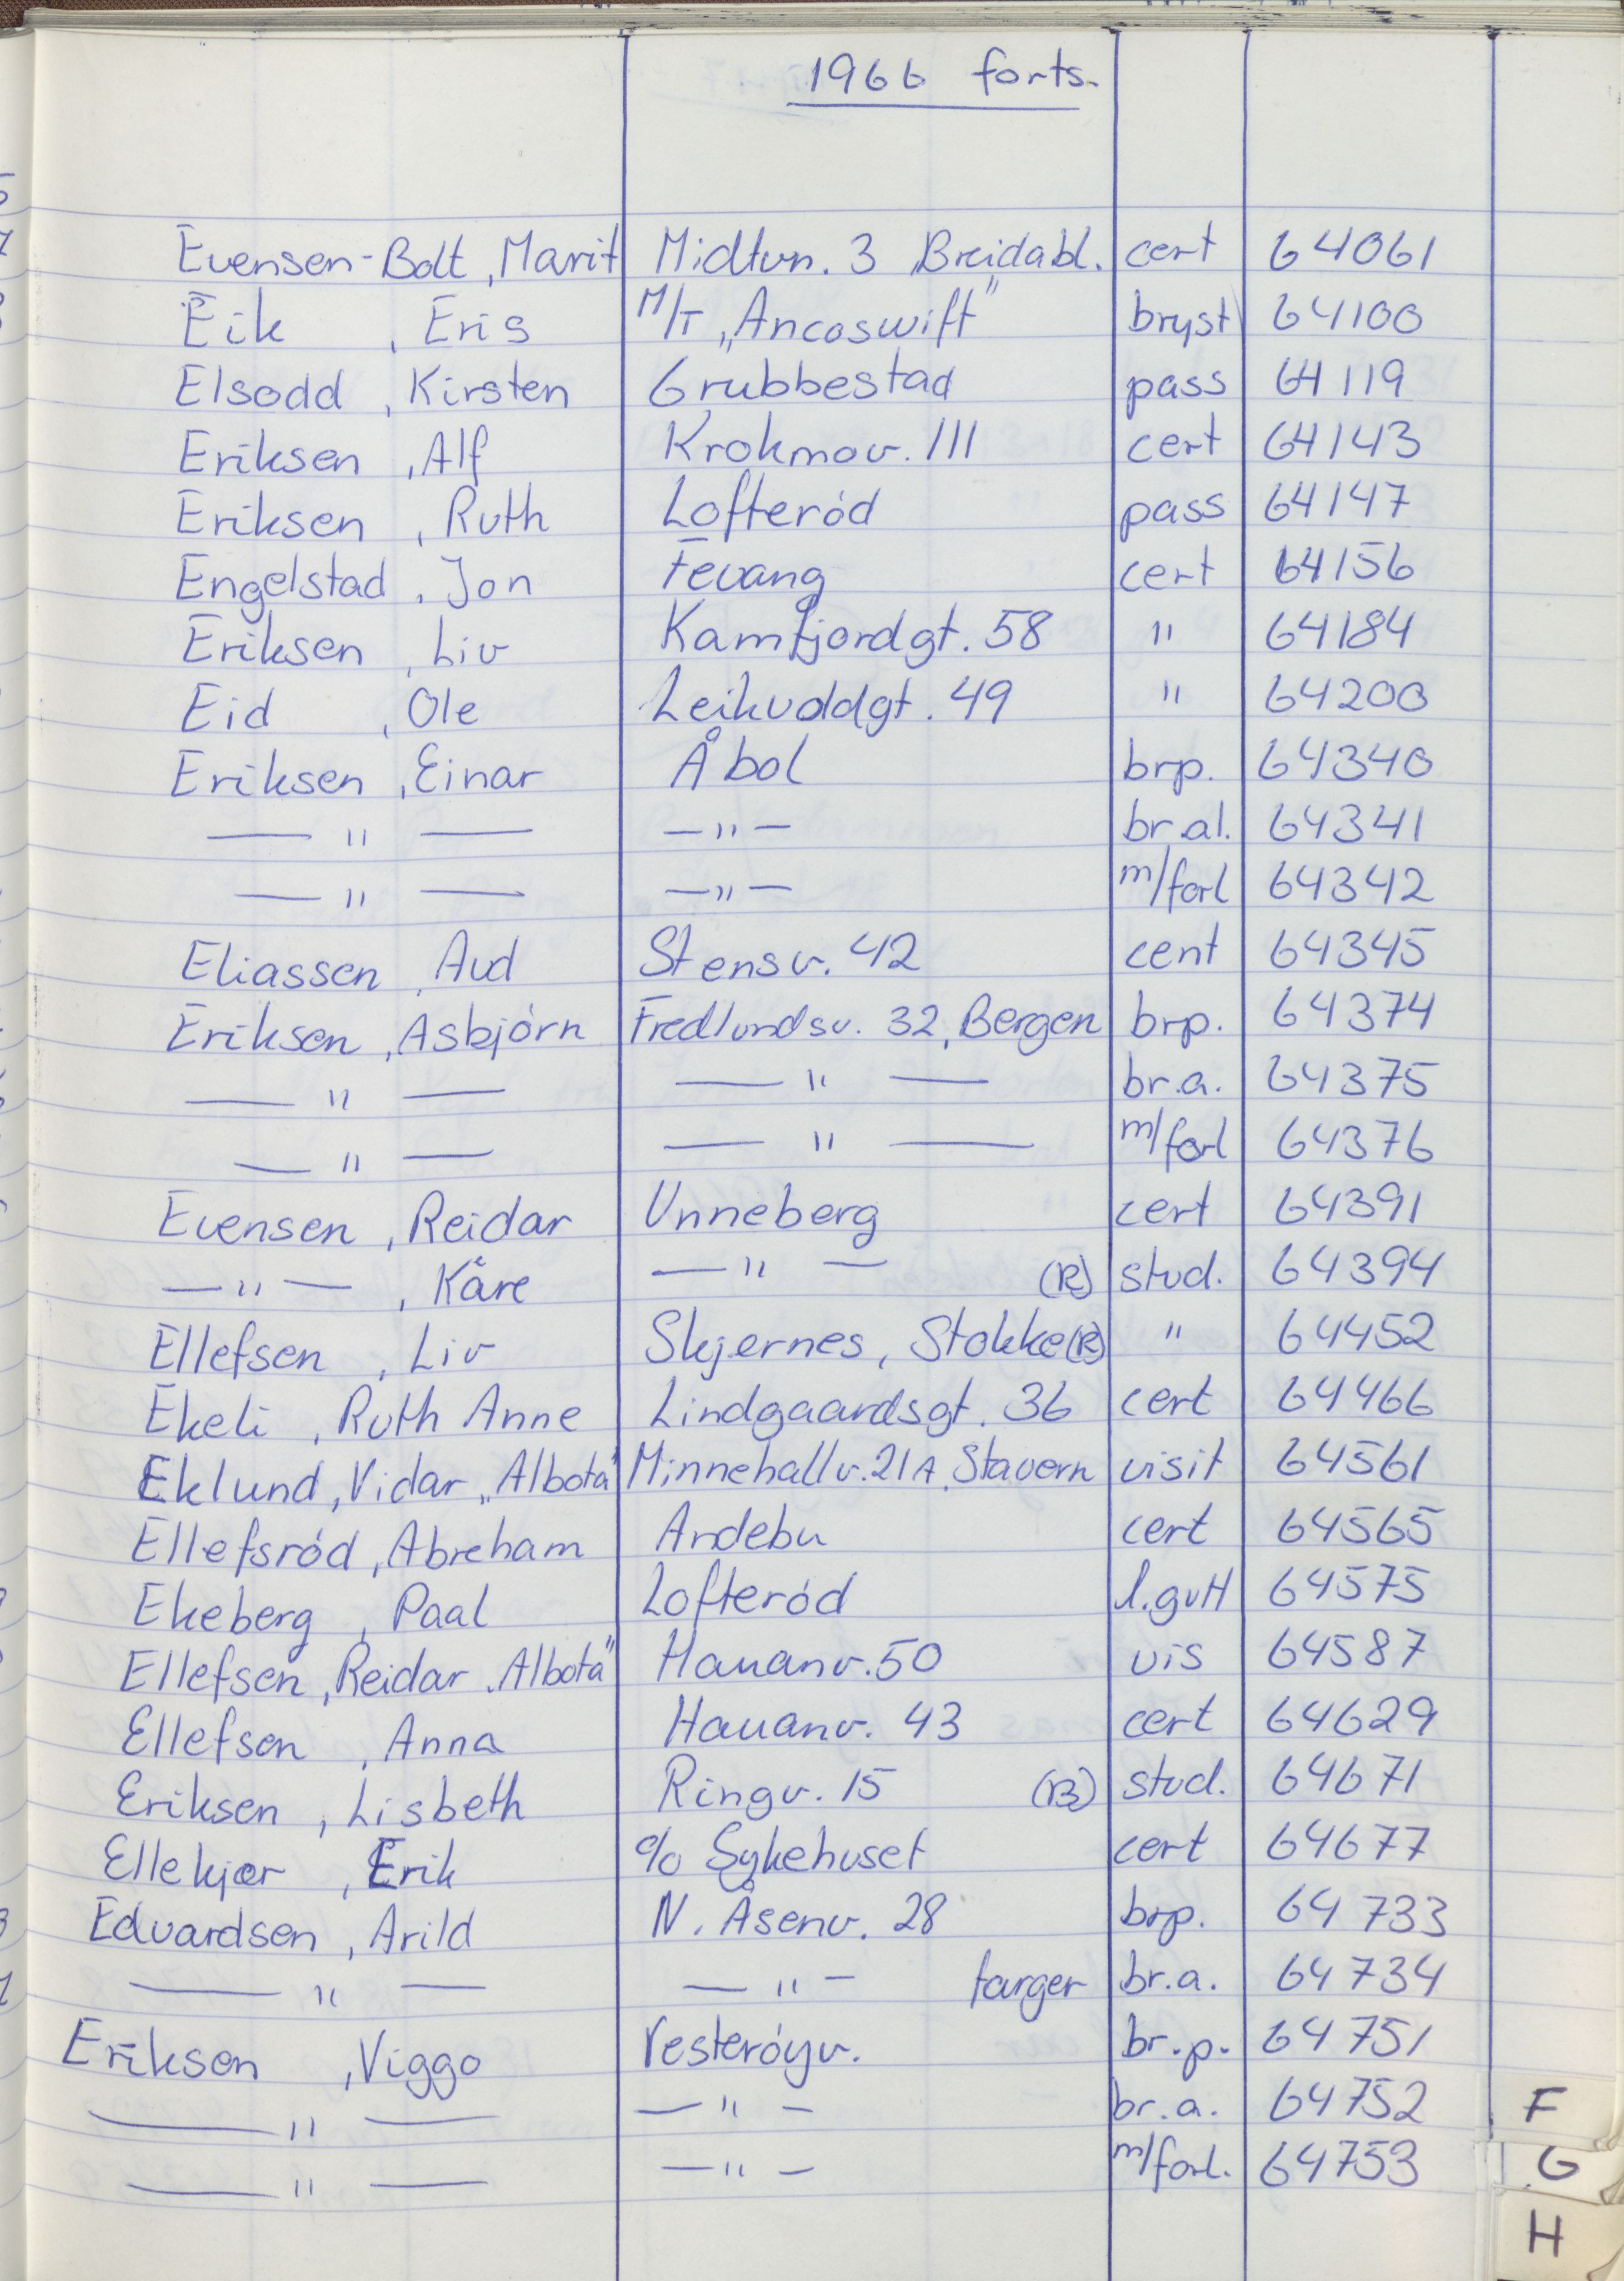 1966 forts.
Evensen-Bolt, Marit Midtvn. 3, Breidabl. cert 64061
Eik, Eris M/T „Ancoswift" bryst 64100
Elsodd, Kirsten Grubbestad pass 64119
Eriksen, Alf Krokmov. 111 cert 64143
Eriksen, Ruth Lofteród pass 64147
Engelstad, Jon Fevang cert 64156
Eriksen, Liv Kamfjordgt. 58 " 64184
Eid, Ole Leikvoldgt. 49 " 64200
Eriksen, Einar Åbol brp. 64340
— " — — " — br.al. 64341
— " — — " — m/forl 64342
Eliassen, Aud Stensv. 42 cert 64345
Eriksen, Asbjórn Fredlundsv. 32, Bergen brp. 64374
— " — — " — br.a. 64375
— " — — " — m/forl 64376
Evensen, Reidar Unneberg cert 64391
— " —, Kåre — " — (R) stud. 64394
Ellefsen, Liv Skjernes, Stokke (R) " 64452
Ekeli, Ruth Anne Lindgaardsgt. 36 cert 64466
Eklund, Vidar „Albota" Minnehallv. 21A, Stavern visit 64561
Ellefsród, Abreham Andebu cert 64565
Ekeberg, Paal Lofteród l.gutt 64575
Ellefsen, Reidar „Albota" Hauanv. 50 vis 64587
Ellefsen, Anna Hauanv. 43 cert 64629
Eriksen, Lisbeth Ringv. 15 (B) stud. 64671
Ellekjær, Erik c/o Sykehuset cert 64677
Edvardsen, Arild N. Åsenv. 28 brp. 64733
— " — — " — farger br.a. 64734
Eriksen, Viggo Vesteróyv. br.p. 64751
— " — — " — br.a. 64752
— " — — " — m/forl. 64753
F
G
H